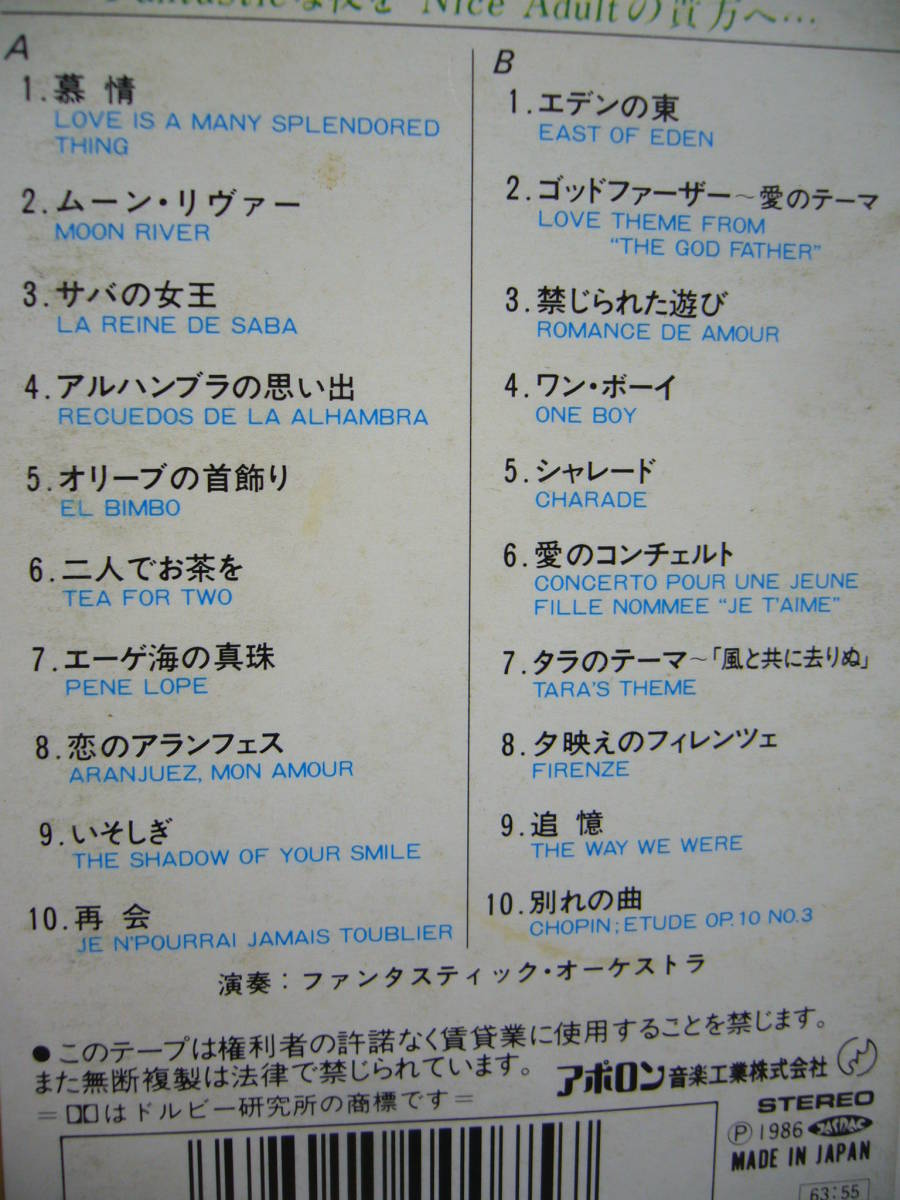 Fantasticな夜を Nice Adultの貴方へ…
A
1.慕 情
LOVE IS A MANY SPLENDORED
THING
2.ムーン・リヴァー
MOON RIVER
3.サバの女王
LA REINE DE SABA
4.アルハンブラの思い出
RECUEDOS DE LA ALHAMBRA
5.オリーブの首飾り
EL BIMBO
6.二人でお茶を
TEA FOR TWO
7.エーゲ海の真珠
PENE LOPE
8.恋のアランフェス
ARANJUEZ, MON AMOUR
9.いそしぎ
THE SHADOW OF YOUR SMILE
10.再 会
JE N'POURRAI JAMAIS TOUBLIER
B
1.エデンの東
EAST OF EDEN
2.ゴッドファーザー～愛のテーマ
LOVE THEME FROM
“THE GOD FATHER”
3.禁じられた遊び
ROMANCE DE AMOUR
4.ワン・ボーイ
ONE BOY
5.シャレード
CHARADE
6.愛のコンチェルト
CONCERTO POUR UNE JEUNE
FILLE NOMMEE “JE T'AIME”
7.タラのテーマ～「風と共に去りぬ」
TARA'S THEME
8.夕映えのフィレンツェ
FIRENZE
9.追 憶
THE WAY WE WERE
10.別れの曲
CHOPIN; ETUDE OP.10 NO.3
演奏：ファンタスティック・オーケストラ
●このテープは権利者の許諾なく賃貸業に使用することを禁じます。
また無断複製は法律で禁じられています。
アポロン音楽工業株式会社
＝はドルビー研究所の商標です＝
STEREO
Ⓟ1986 JASRAC
MADE IN JAPAN
63:55